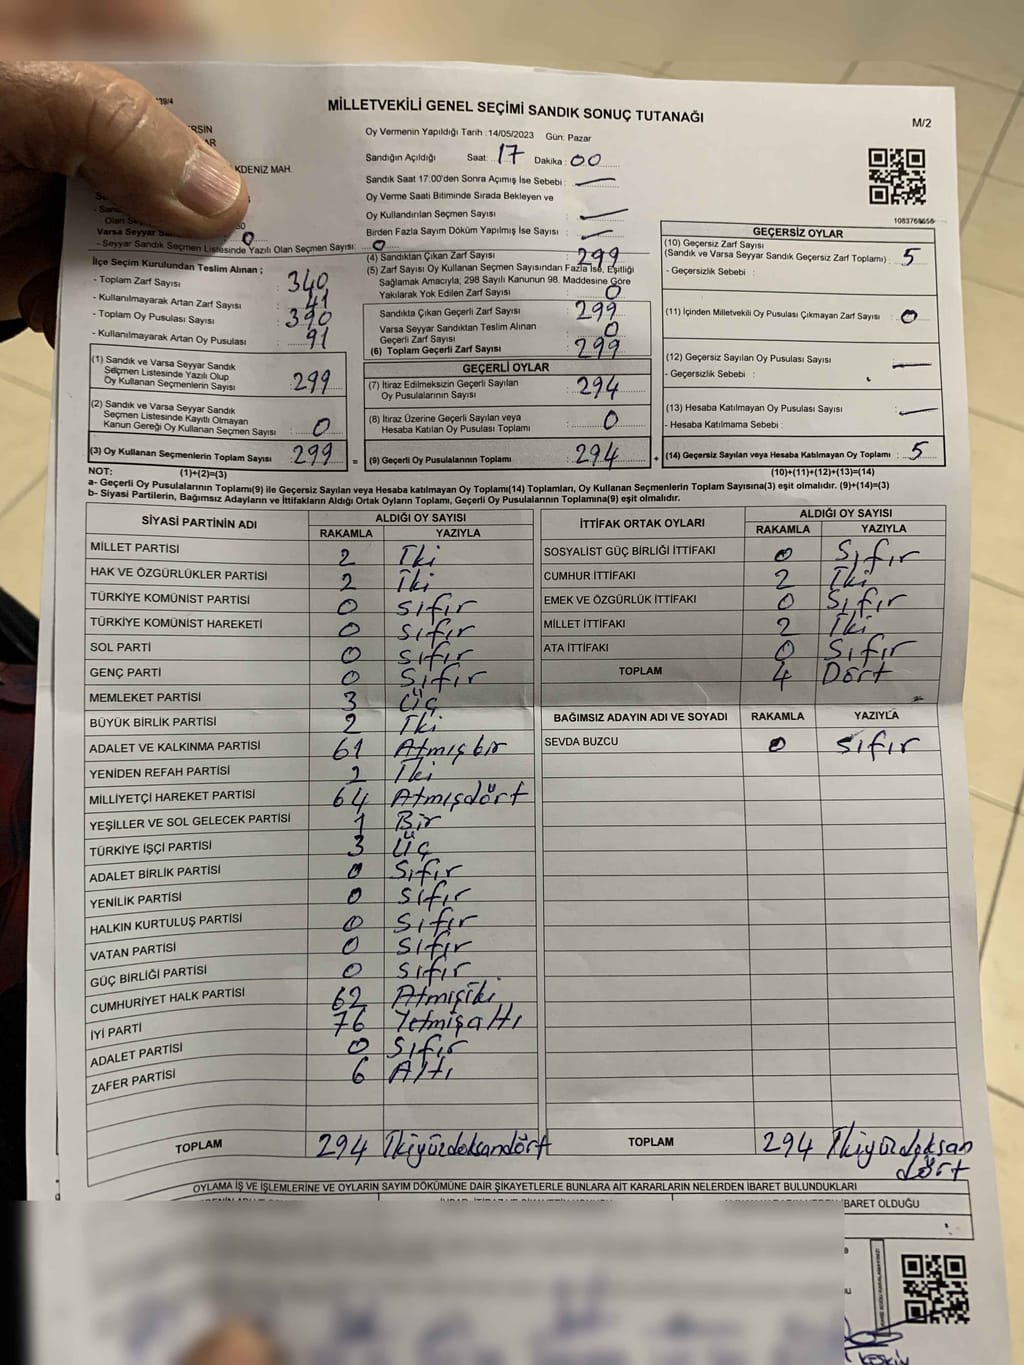 39/4
MİLLETVEKİLİ GENEL SEÇİMİ SANDIK SONUÇ TUTANAĞI
M/2
Oy Vermenin Yapıldığı Tarih :14/05/2023 Gün: Pazar
Sandığın Açıldığı Saat: 17 Dakika : 00
KDENİZ MAH.
Sandık Saat 17:00'den Sonra Açımış İse Sebebi : —
Oy Verme Saati Bitiminde Sırada Bekleyen ve
Oy Kullandırılan Seçmen Sayısı : —
Birden Fazla Sayım Döküm Yapılmış İse Sayısı : —
1083768656
Varsa Seyyar 0
- Seyyar Sandık Seçmen Listesinde Yazılı Olan Seçmen Sayısı: 0
İlçe Seçim Kurulundan Teslim Alınan ;
- Toplam Zarf Sayısı : 340
- Kullanılmayarak Artan Zarf Sayısı : 41
- Toplam Oy Pusulası Sayısı : 390
- Kullanılmayarak Artan Oy Pusulası : 91
(1) Sandık ve Varsa Seyyar Sandık
Seçmen Listesinde Yazılı Olup
Oy Kullanan Seçmenlerin Sayısı : 299
(2) Sandık ve Varsa Seyyar Sandık
Seçmen Listesinde Kayıtlı Olmayan
Kanun Gereği Oy Kullanan Seçmen Sayısı : 0
(3) Oy Kullanan Seçmenlerin Toplam Sayısı : 299 =
(4) Sandıktan Çıkan Zarf Sayısı : 299
(5) Zarf Sayısı Oy Kullanan Seçmen Sayısından Fazla İse, Eşitliği
Sağlamak Amacıyla, 298 Sayılı Kanunun 98. Maddesine Göre
Yakılarak Yok Edilen Zarf Sayısı : 0
Sandıkta Çıkan Geçerli Zarf Sayısı : 299
Varsa Seyyar Sandıktan Teslim Alınan
Geçerli Zarf Sayısı : 0
(6) Toplam Geçerli Zarf Sayısı : 299
GEÇERLİ OYLAR
(7) İtiraz Edilmeksizin Geçerli Sayılan
Oy Pusulalarının Sayısı : 294
(8) İtiraz Üzerine Geçerli Sayılan veya
Hesaba Katılan Oy Pusulası Toplamı : 0
(9) Geçerli Oy Pusulalarının Toplamı : 294 +
GEÇERSİZ OYLAR
(10) Geçersiz Zarf Sayısı
(Sandık ve Varsa Seyyar Sandık Geçersiz Zarf Toplamı) : 5
- Geçersizlik Sebebi :
(11) İçinden Milletvekili Oy Pusulası Çıkmayan Zarf Sayısı : 0
(12) Geçersiz Sayılan Oy Pusulası Sayısı : —
- Geçersizlik Sebebi :
(13) Hesaba Katılmayan Oy Pusulası Sayısı : —
- Hesaba Katılmama Sebebi :
(14) Geçersiz Sayılan veya Hesaba Katılmayan Oy Toplamı : 5
NOT: (1)+(2)=(3) (10)+(11)+(12)+(13)=(14)
a- Geçerli Oy Pusulalarının Toplamı(9) ile Geçersiz Sayılan veya Hesaba katılmayan Oy Toplamı(14) Toplamları, Oy Kullanan Seçmenlerin Toplam Sayısına(3) eşit olmalıdır. (9)+(14)=(3)
b- Siyasi Partilerin, Bağımsız Adayların ve İttifakların Aldığı Ortak Oyların Toplamı, Geçerli Oy Pusulalarının Toplamına(9) eşit olmalıdır.
SİYASİ PARTİNİN ADI ALDIĞI OY SAYISI
RAKAMLA YAZIYLA
MİLLET PARTİSİ 2 İki
HAK VE ÖZGÜRLÜKLER PARTİSİ 2 İki
TÜRKİYE KOMÜNİST PARTİSİ 0 sıfır
TÜRKİYE KOMÜNİST HAREKETİ 0 sıfır
SOL PARTİ 0 sıfır
GENÇ PARTİ 0 Sıfır
MEMLEKET PARTİSİ 3 Üç
BÜYÜK BİRLİK PARTİSİ 2 İki
ADALET VE KALKINMA PARTİSİ 61 Atmışbir
YENİDEN REFAH PARTİSİ 2 İki
MİLLİYETÇİ HAREKET PARTİSİ 64 Atmışdört
YEŞİLLER VE SOL GELECEK PARTİSİ 1 Bir
TÜRKİYE İŞÇİ PARTİSİ 3 Üç
ADALET BİRLİK PARTİSİ 0 Sıfır
YENİLİK PARTİSİ 0 Sıfır
HALKIN KURTULUŞ PARTİSİ 0 Sıfır
VATAN PARTİSİ 0 Sıfır
GÜÇ BİRLİĞİ PARTİSİ 0 sıfır
CUMHURİYET HALK PARTİSİ 62 Atmışiki
İYİ PARTİ 76 Yetmişaltı
ADALET PARTİSİ 0 Sıfır
ZAFER PARTİSİ 6 Altı
TOPLAM 294 İkiyüzdoksandört
İTTİFAK ORTAK OYLARI ALDIĞI OY SAYISI
RAKAMLA YAZIYLA
SOSYALİST GÜÇ BİRLİĞİ İTTİFAKI 0 Sıfır
CUMHUR İTTİFAKI 2 İki
EMEK VE ÖZGÜRLÜK İTTİFAKI 0 Sıfır
MİLLET İTTİFAKI 2 İki
ATA İTTİFAKI 0 Sıfır
TOPLAM 4 Dört
BAĞIMSIZ ADAYIN ADI VE SOYADI RAKAMLA YAZIYLA
SEVDA BUZCU 0 sıfır
TOPLAM 294 İkiyüzdoksan
dört
OYLAMA İŞ VE İŞLEMLERİNE VE OYLARIN SAYIM DÖKÜMÜNE DAİR ŞİKAYETLERLE BUNLARA AİT KARARLARIN NELERDEN İBARET BULUNDUKLARI
İBARET OLDUĞU